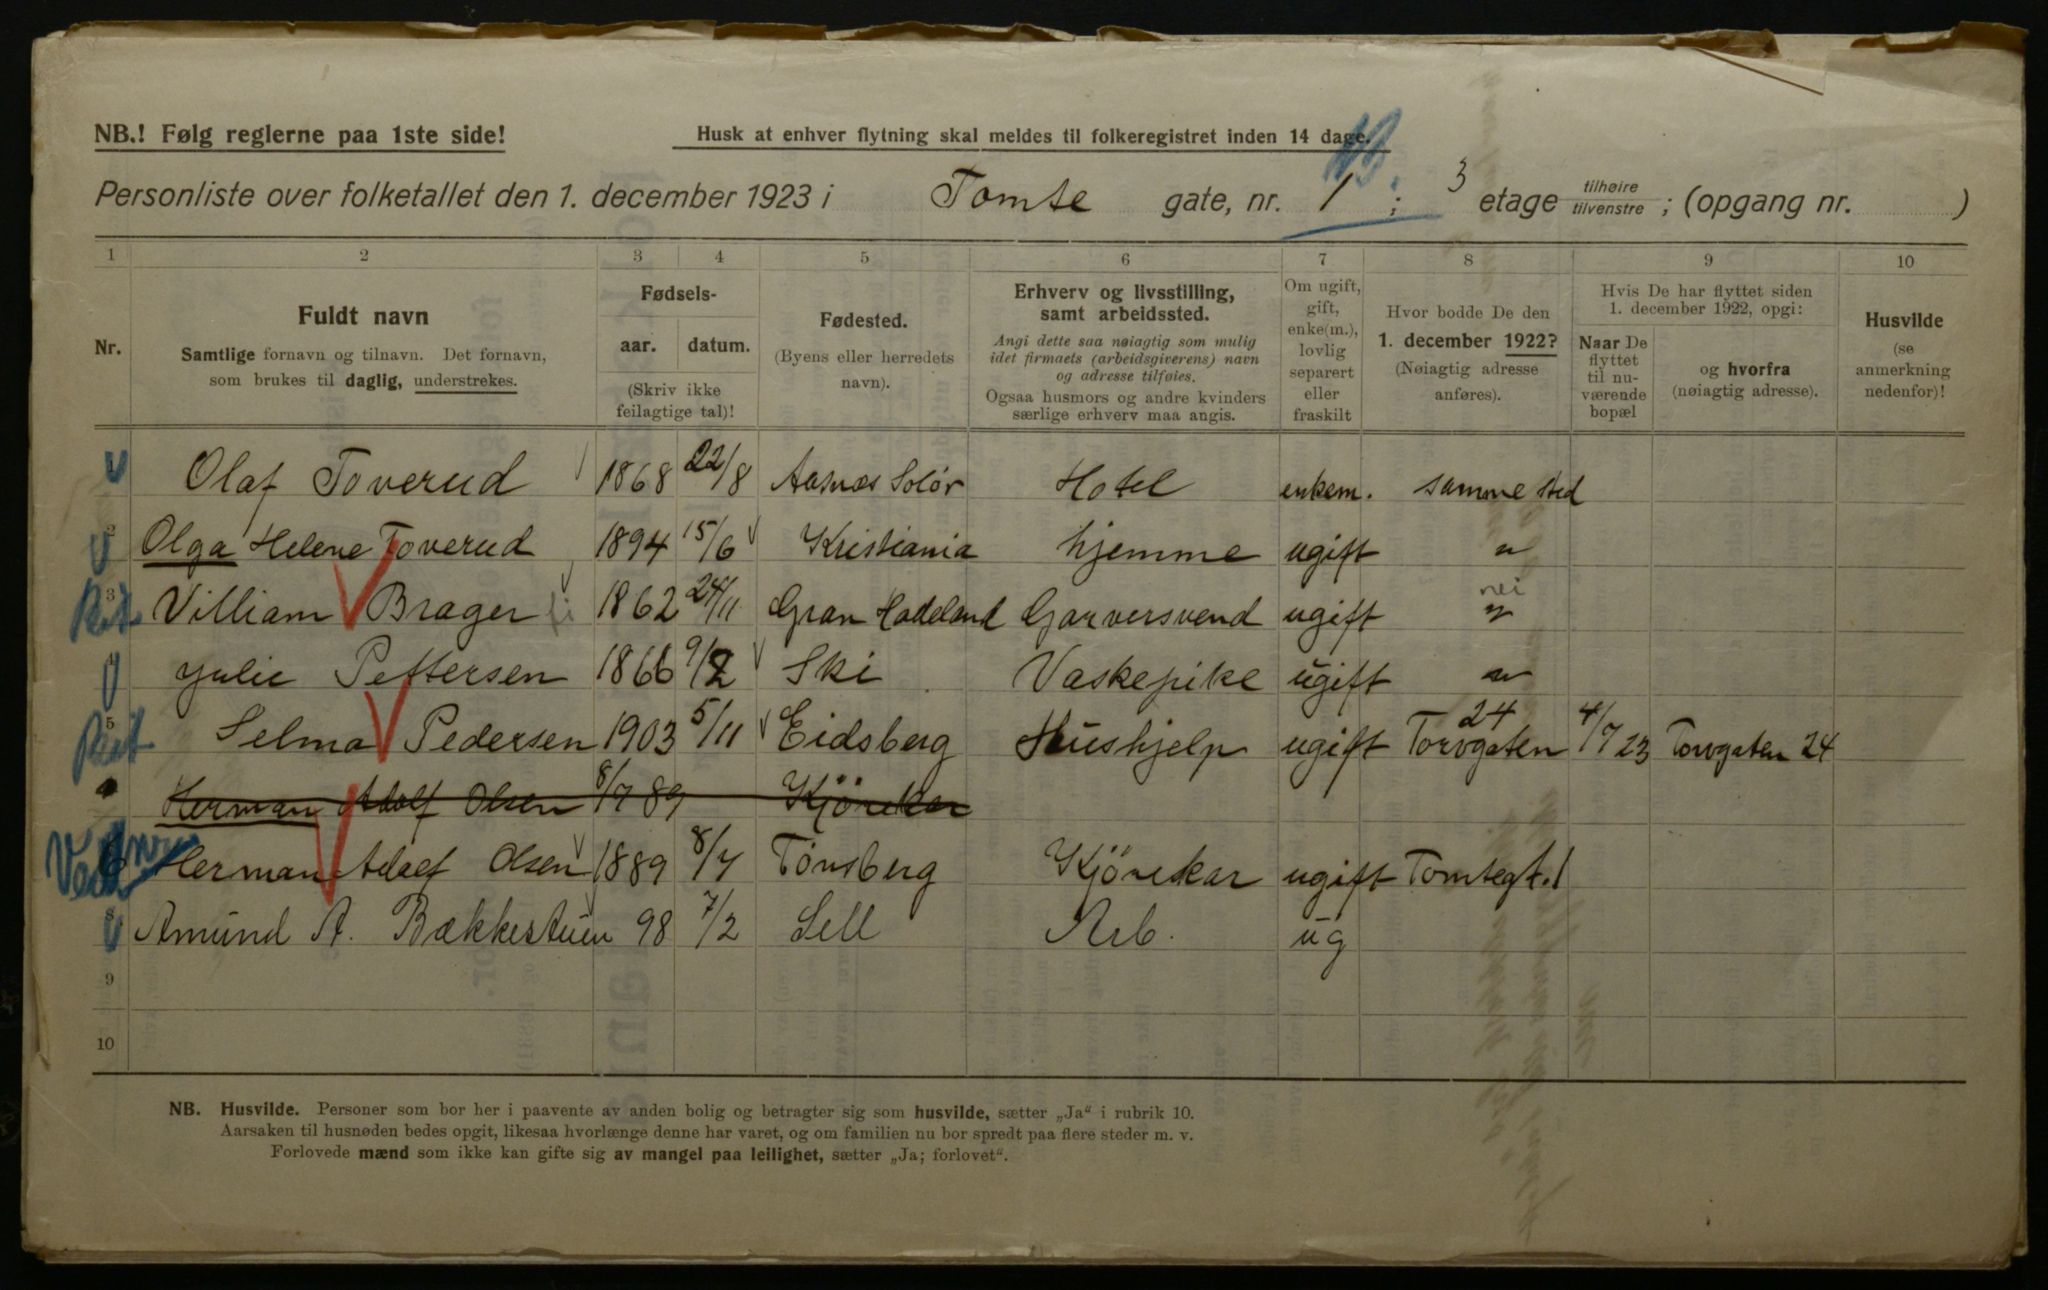 NB.! Følg reglerne paa 1ste side!
Husk at enhver flytning skal meldes til folkeregistret inden 14 dage.
Personliste over folketallet den 1. december 1923 i Tomte gate, nr. 1 ; 3 etage tilhøire tilvenstre ; (opgang nr. )
1 2 3 4 5 6 7 8 9 10
Nr.
Fuldt navn
Samtlige fornavn og tilnavn. Det fornavn,
som brukes til daglig, understrekes.
Fødsels-
aar. datum.
(Skriv ikke
feilagtige tal)!
Fødested.
(Byens eller herredets
navn).
Erhverv og livsstilling,
samt arbeidssted.
Angi dette saa nøiagtig som mulig
idet firmaets (arbeidsgiverens) navn
og adresse tilføies.
Ogsaa husmors og andre kvinders
særlige erhverv maa angis.
Om ugift,
gift,
enke(m.),
lovlig
separert
eller
fraskilt
Hvor bodde De den
1. december 1922?
(Nøiagtig adresse
anføres).
Hvis De har flyttet siden
1. december 1922, opgi:
Naar De
flyttet
til nu-
værende
bopæl
og hvorfra
(nøiagtig adresse).
Husvilde
(se
anmerkning
nedenfor)!
Olaf Toverud 1868 22/8 Aasnæs Solør Hotel enkem. samme sted
2 Olga Helene Toverud 1894 15/6 Kristiania hjemme ugift "
nei
3 Villiam Brager 1862 24/11 Gran Hadeland Garversvend ugift "
4 Julie Pettersen 1866 9/2 Ski Vaskepike ugift "
5 Selma Pedersen 1903 5/11 Eidsberg Hushjelp ugift Torvgaten 24 4/7 23 Torvgaten 24
Herman Adolf Olsen 8/7 89 Kjörekar
Herman Adolf Olsen 1889 8/7 Tönsberg Kjörekar ugift Tomtegt. 1
8 Amund A. Bækkestuen 98 7/2 Sell Arb. ug
9
10
NB. Husvilde. Personer som bor her i paavente av anden bolig og betragter sig som husvilde, sætter „Ja“ i rubrik 10.
Aarsaken til husnøden bedes opgit, likesaa hvorlænge denne har varet, og om familien nu bor spredt paa flere steder m. v.
Forlovede mænd som ikke kan gifte sig av mangel paa leilighet, sætter „Ja; forlovet“.